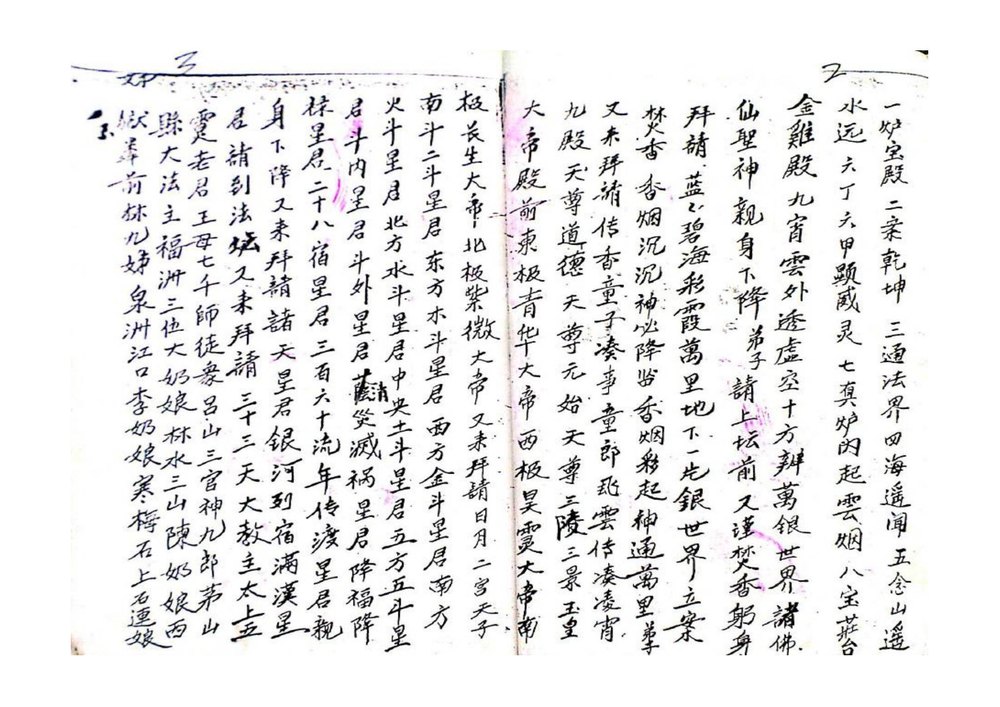 2
一炉宝殿二亲乾坤 三通法界四海遥闻五念山遥
水远 六丁六甲顯威灵 七真炉内起雲烟 八宝莊台
金雞殿 九宵雲外透虚空十方辨萬银世界諸佛
仙聖神 親身下降 弟子請上坛前 又谨焚香躬身
拜請 蓝々碧海彩霞萬里地下一片銀世界立案
焚香 香烟沉沉神必降当香烟彩起神通萬里弟子
又来拜請传香童子凑事童郎飛雲传凑凌宵
九殿天尊道德天尊元始天尊三陵三景玉皇
大帝殿前東极青华大帝西极昊霊大帝南
3
极長生大帝北极紫微大帝又来拜請日月二宫天子
南斗二斗星君 东方木斗星君 西方金斗星君南方
火斗星君北方水斗星君中央土斗星君五方五斗星
君斗内星君斗外星君 消災滅祸星君降福降
禄星君二十八宿星君三百六十流年传渡星君親
身下降又来拜請諸天星君銀河列宿滿漢星
君請到法坛又来拜請 三十三天大教主太上五
霊老君王母七千師徒衆吕山三宫神九郎茅山
縣大法主福洲三位大奶娘林水三山陳奶娘西
獄前林九娣泉洲江口李奶娘寒梅石上石連娘
娣
玉